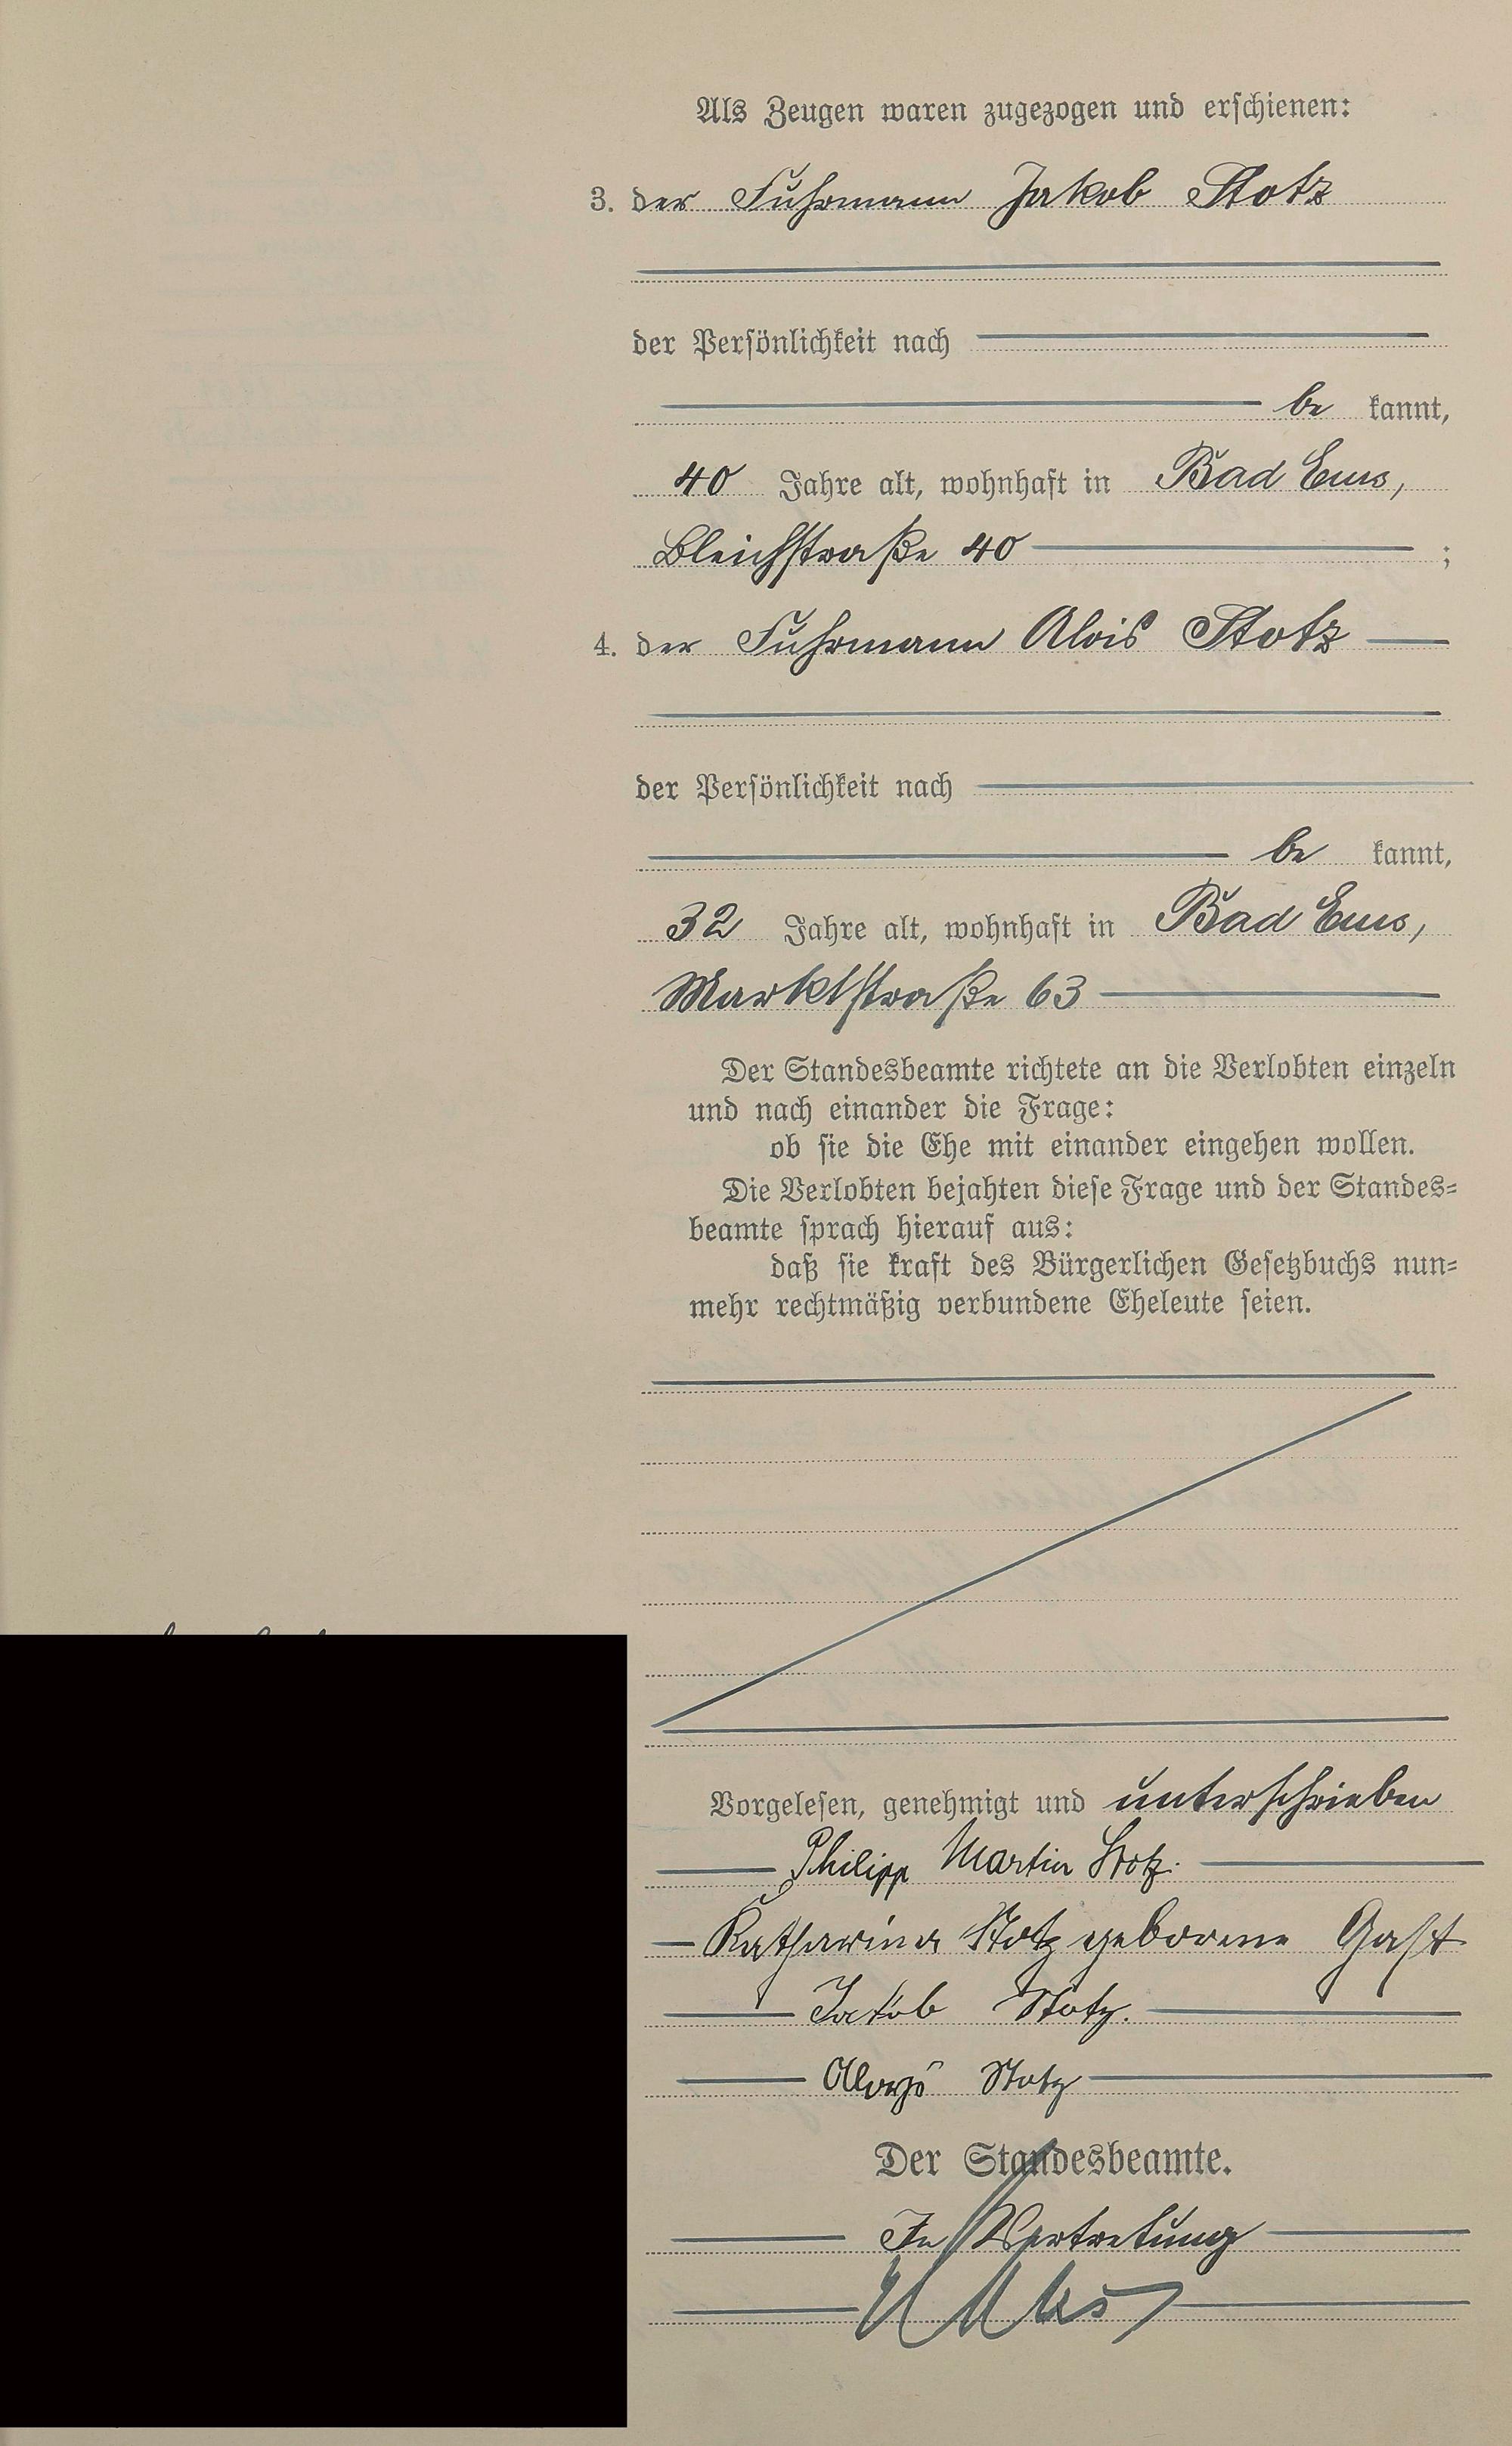 Als Zeugen waren zugezogen und erschienen:
3. der Fuhrmann Jakob Stotz
der Persönlichkeit nach
be kannt,
40 Jahre alt, wohnhaft in Bad Ems,
Bleichstraße 40 ;
4. der Fuhrmann Alois Stotz
der Persönlichkeit nach
be kannt,
32 Jahre alt, wohnhaft in Bad Ems,
Marktstraße 63
Der Standesbeamte richtete an die Verlobten einzeln
und nach einander die Frage:
ob sie die Ehe mit einander eingehen wollen.
Die Verlobten bejahten diese Frage und der Standes-
beamte sprach hierauf aus:
daß sie kraft des Bürgerlichen Gesetzbuchs nun-
mehr rechtmäßig verbundene Eheleute seien.
Vorgelesen, genehmigt und unterschrieben
Philipp Martin Stotz.
Katharina Stotz geborene Gast
Jakob Stotz.
Aloys Stotz
Der Standesbeamte.
In Vertretung